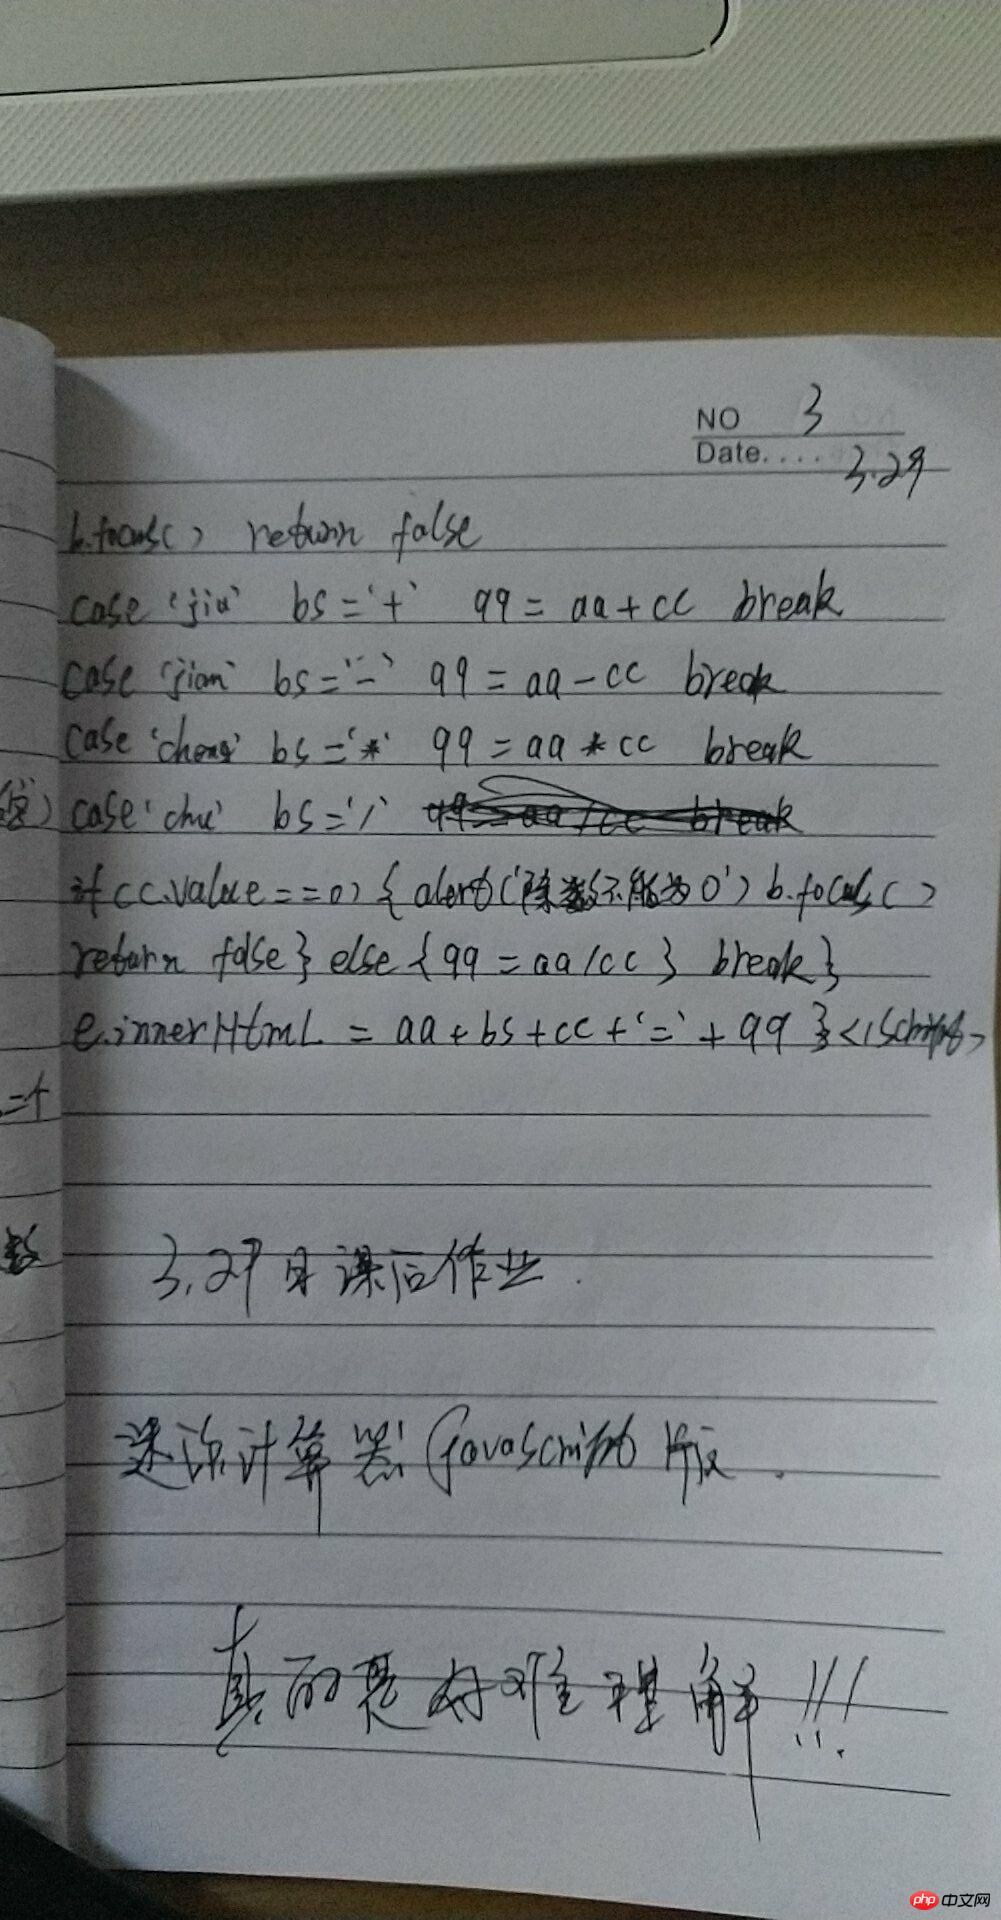 NO 3
Date.... 3.29
b.focus() return false
case 'jia' bs='+' qq = aa + cc break
case 'jian' bs='-' qq = aa - cc break
case 'cheng' bs='*' qq = aa * cc break
case 'chu' bs='/' qq = aa / cc break
if cc.value == 0) { alert('除数不能为0') b.focus()
return false } else { qq = aa / cc } break }
e.innerHtmL = aa + bs + cc + '=' + qq } </script>
3.29日课后作业.
迷你计算器 (javascript 版.
真的是好难理解!!!
php 中文网